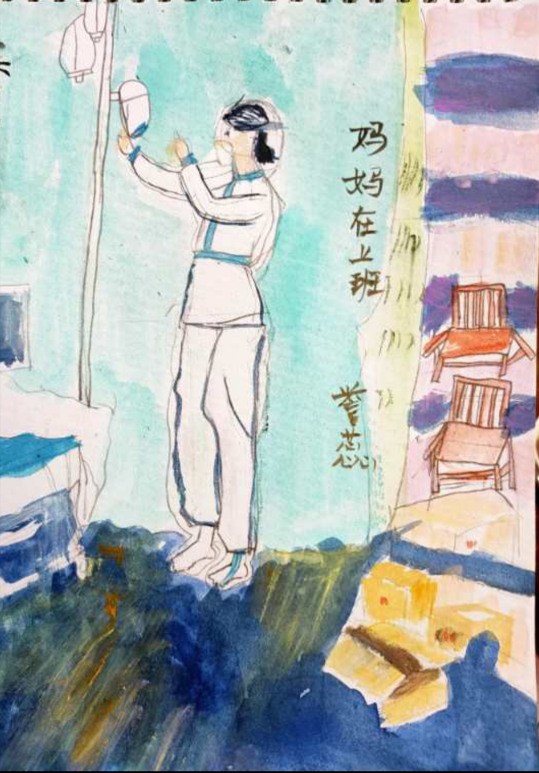 妈妈在上班
誉蕊